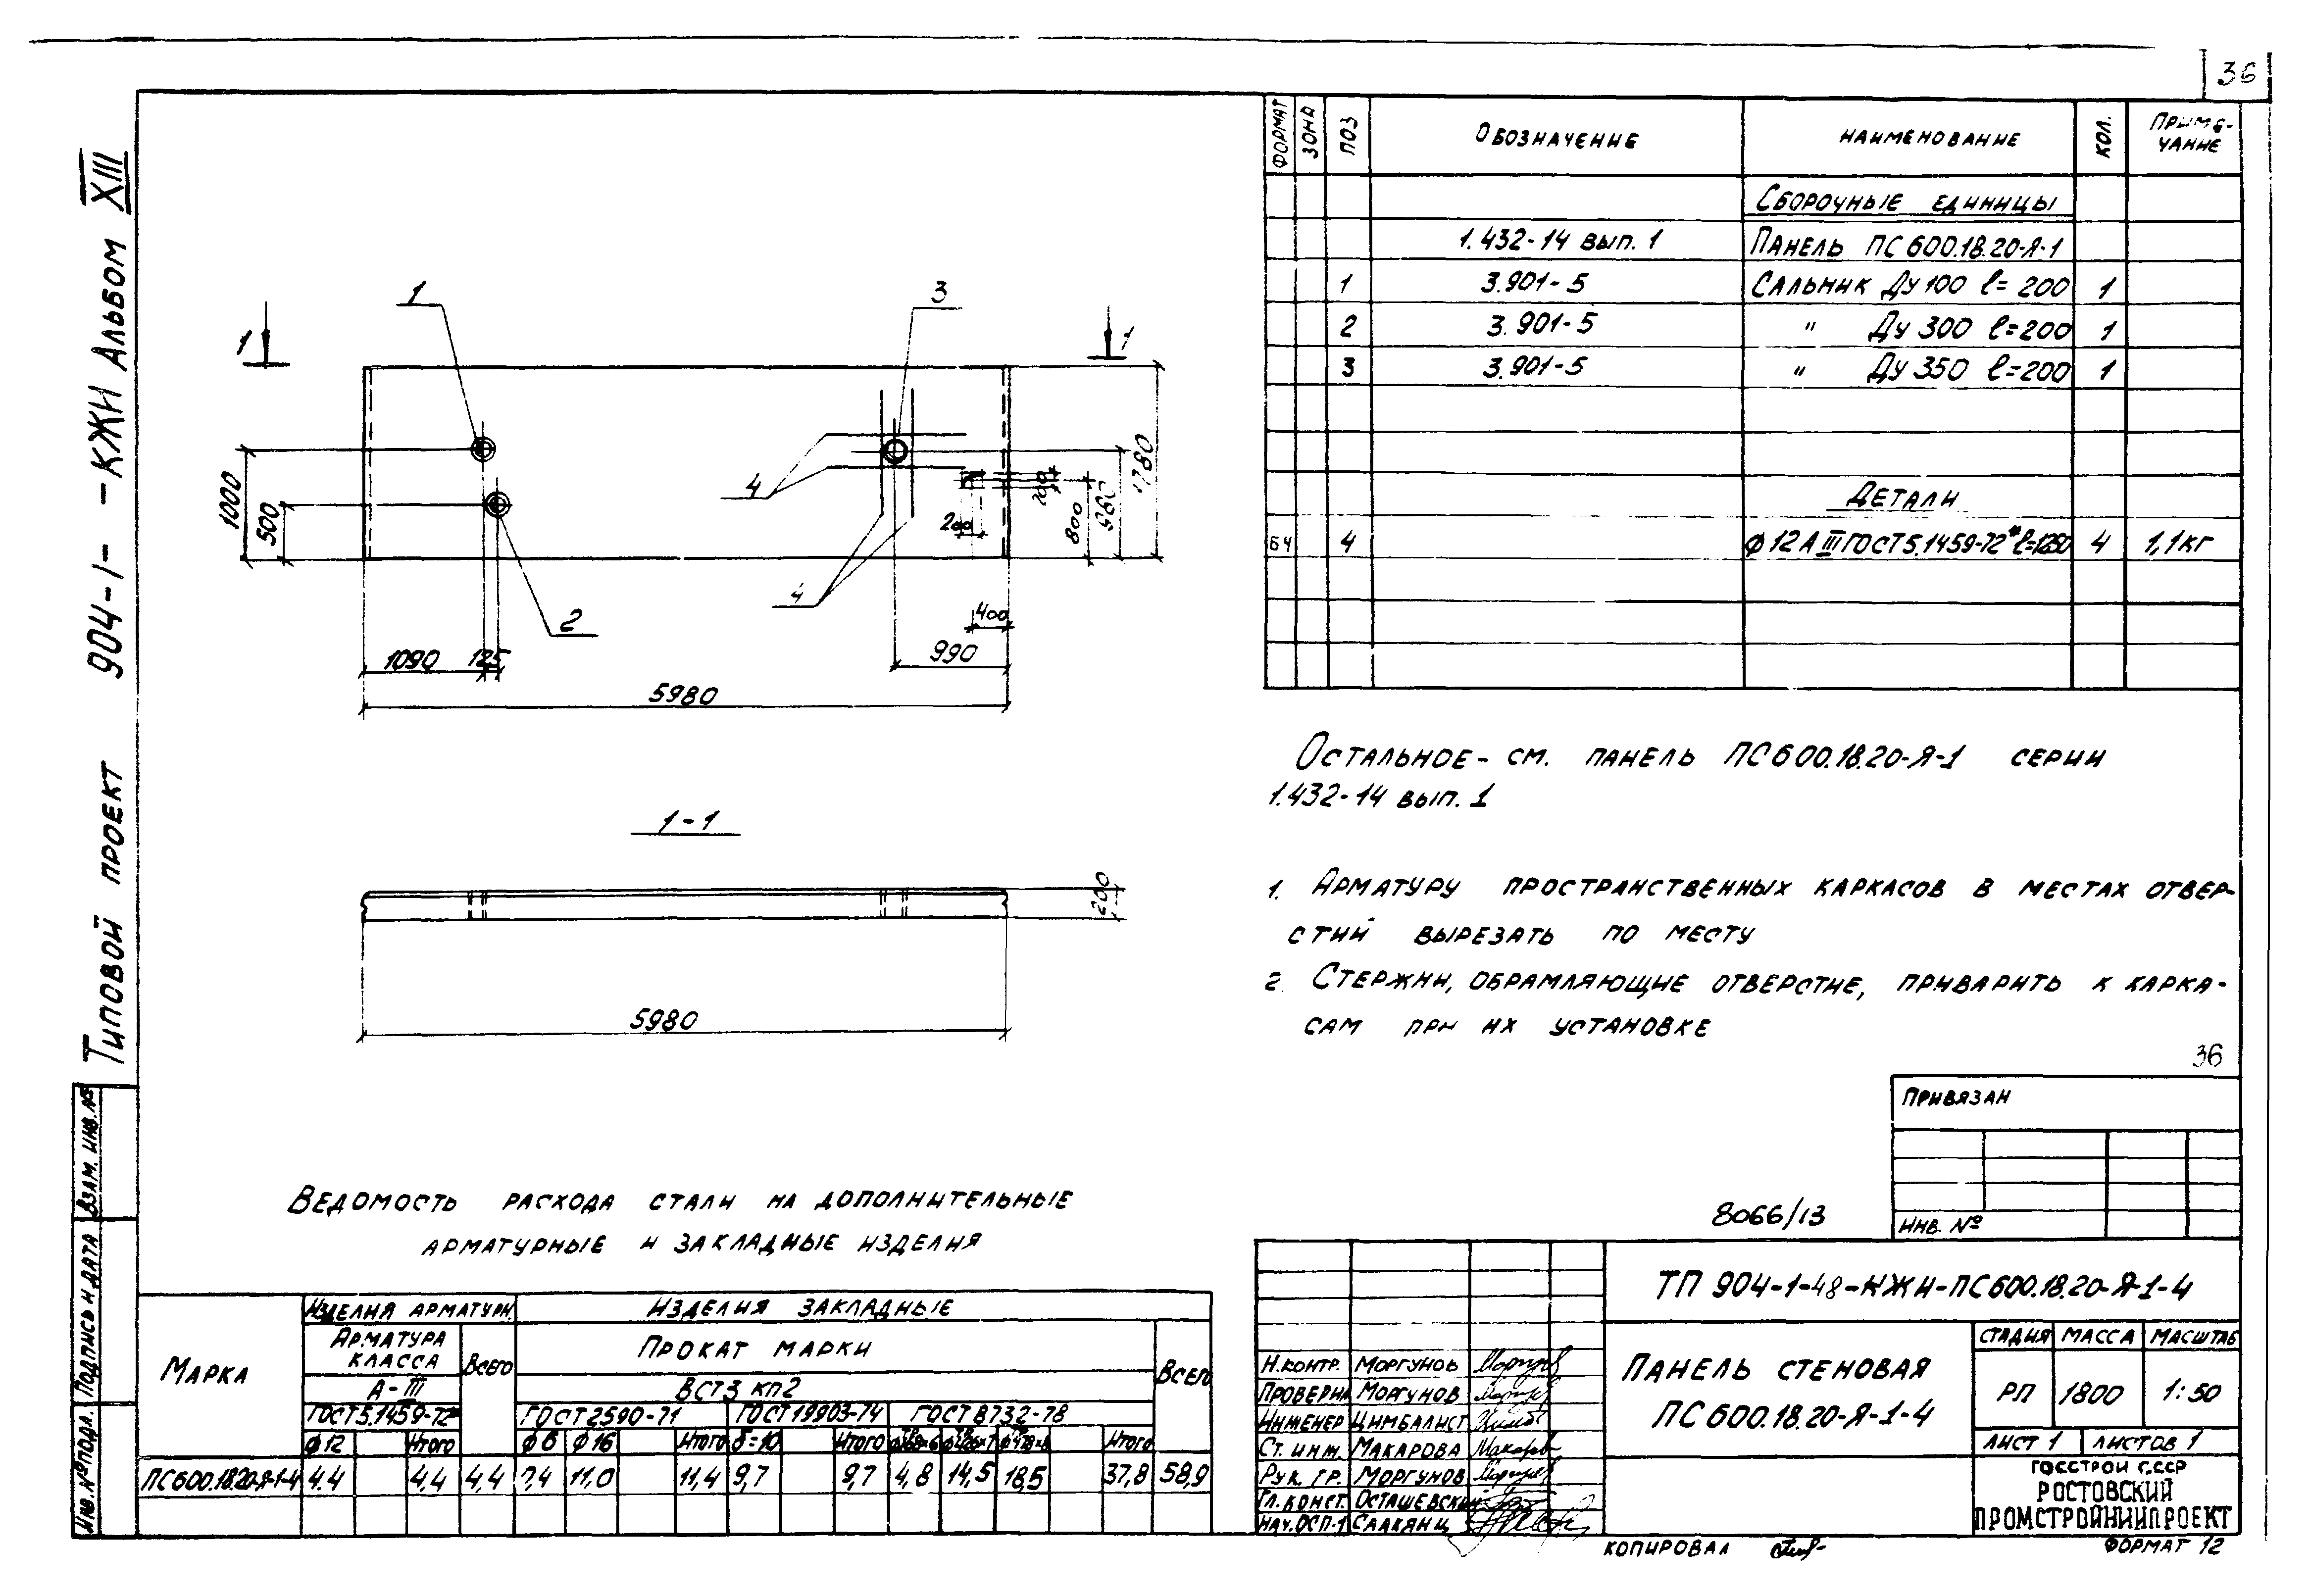 36
Типовой проект 904-1- -КЖИ Альбом XIII
1 3
1 1
1000 500 4 200 200 800 980 1780
4 2
400
1090 125 990
5980
1-1
200
5980
ФОРМАТ ЗОНА ПОЗ Обозначение Наименование Кол. Примечание
Сборочные единицы
1.432-14 вып. 1 Панель ПС600.18.20-Я-1
1 3.901-5 Сальник Ду 100 ℓ=200 1
2 3.901-5 " Ду 300 ℓ=200 1
3 3.901-5 " Ду 350 ℓ=200 1
Детали
БЧ 4 ф12АIII ГОСТ5.1459-72* ℓ=1250 4 1,1кг
Остальное - см. панель ПС600.18.20-Я-1 серии
1.432-14 вып. 1
1. Арматуру пространственных каркасов в местах отвер-
стий вырезать по месту
2. Стержни, обрамляющие отверстие, приварить к карка-
сам при их установке
36
Привязан
Инв. №
8066/13
Ведомость расхода стали на дополнительные
арматурные и закладные изделия
Марка Изделия арматурн. Изделия закладные
Арматура класса Всего Прокат марки Всего
А-III ВСт3 кп2
ГОСТ5.1459-72* ГОСТ2590-71 ГОСТ19903-74 ГОСТ8732-78
ф12 Итого ф6 ф16 Итого δ=10 Итого Итого
ПС600.18.20-Я-1-4 4.4 4,4 4,4 11,0 11,4 9,7 9,7 4,8 14,5 18,5 37,8 58,9
ТП 904-1-48-КЖИ-ПС600.18.20-Я-1-4
Панель стеновая
ПС600.18.20-Я-1-4
Стадия Масса Масштаб
РП 1800 1:50
Лист 1 Листов 1
Госстрой СССР
Ростовский
Промстройниипроект
Н.контр. Моргунов
Проверил Моргунов
Инженер Цимбалист
Ст. инж. Макарова
Рук. гр. Моргунов
Гл. конст. Осташевский
Нач. ОСП-1 Саакянц
Копировал
Формат 12
Взам. инв. №
Подпись и дата
Инв. № подл.